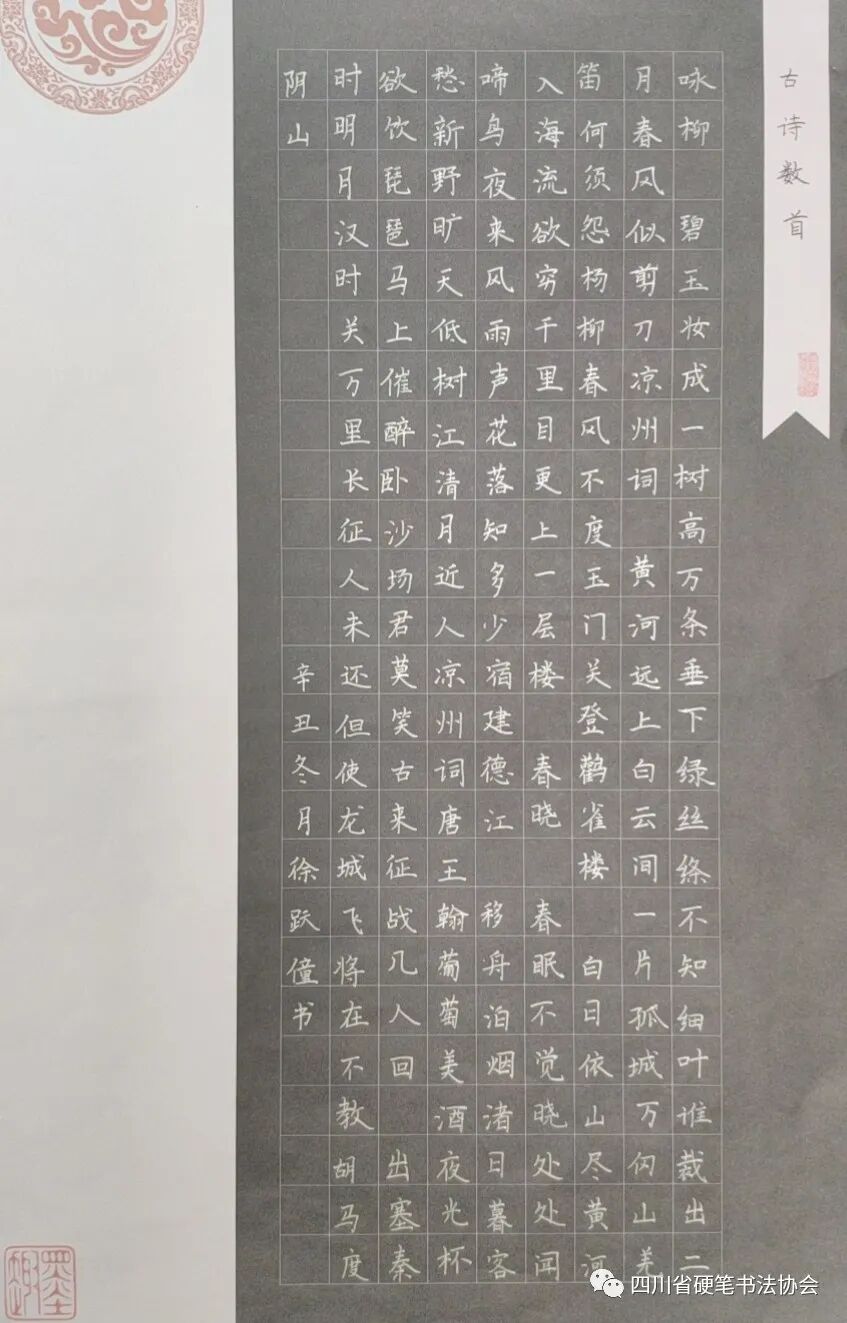 古诗数首
咏柳 碧玉妆成一树高万条垂下绿丝绦不知细叶谁裁出二
月春风似剪刀凉州词 黄河远上白云间一片孤城万仞山羌
笛何须怨杨柳春风不度玉门关登鹳雀楼 白日依山尽黄河
入海流欲穷千里目更上一层楼 春晓 春眠不觉晓处处闻
啼鸟夜来风雨声花落知多少宿建德江 移舟泊烟渚日暮客
愁新野旷天低树江清月近人凉州词唐王翰葡萄美酒夜光杯
欲饮琵琶马上催醉卧沙场君莫笑古来征战几人回 出塞秦
时明月汉时关万里长征人未还但使龙城飞将在不教胡马度
阴山 辛丑冬月徐跃僮书
墨趣
四川省硬笔书法协会